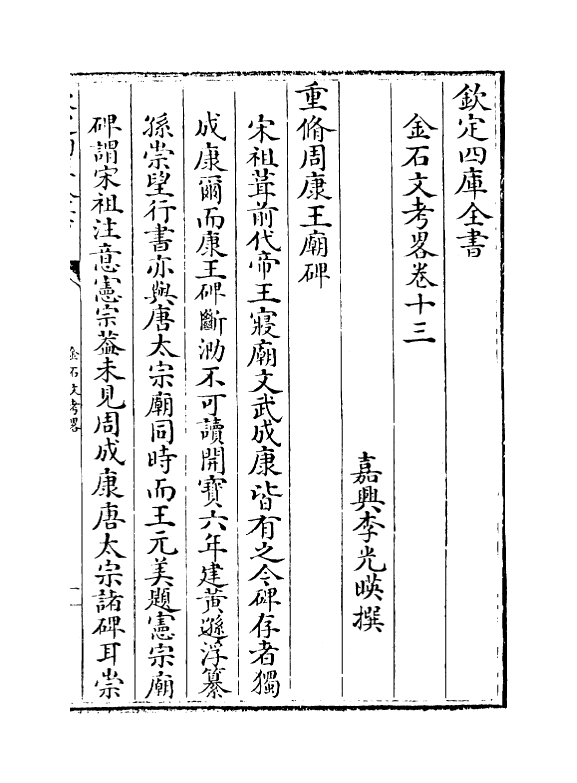 欽定四庫全書
金石文考畧卷十三
嘉興李光暎撰
重脩周康王廟碑
宋祖葺前代帝王寢廟文武成康皆有之今碑存者獨
成康爾而康王碑斷泐不可讀開寶六年建黃遜浮纂
孫崇望行書亦與唐太宗廟同時而王元美題憲宗廟
碑謂宋祖注意憲宗葢未見周成康唐太宗諸碑耳崇
金石文考畧